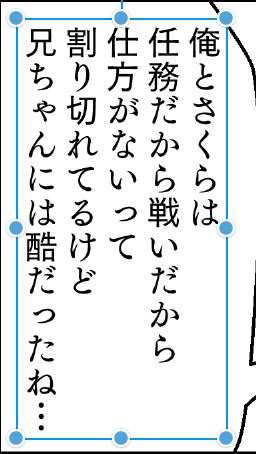 俺とさくらは
任務だから戦いだから
仕方がないって
割り切れてるけど
兄ちゃんには酷だったね…